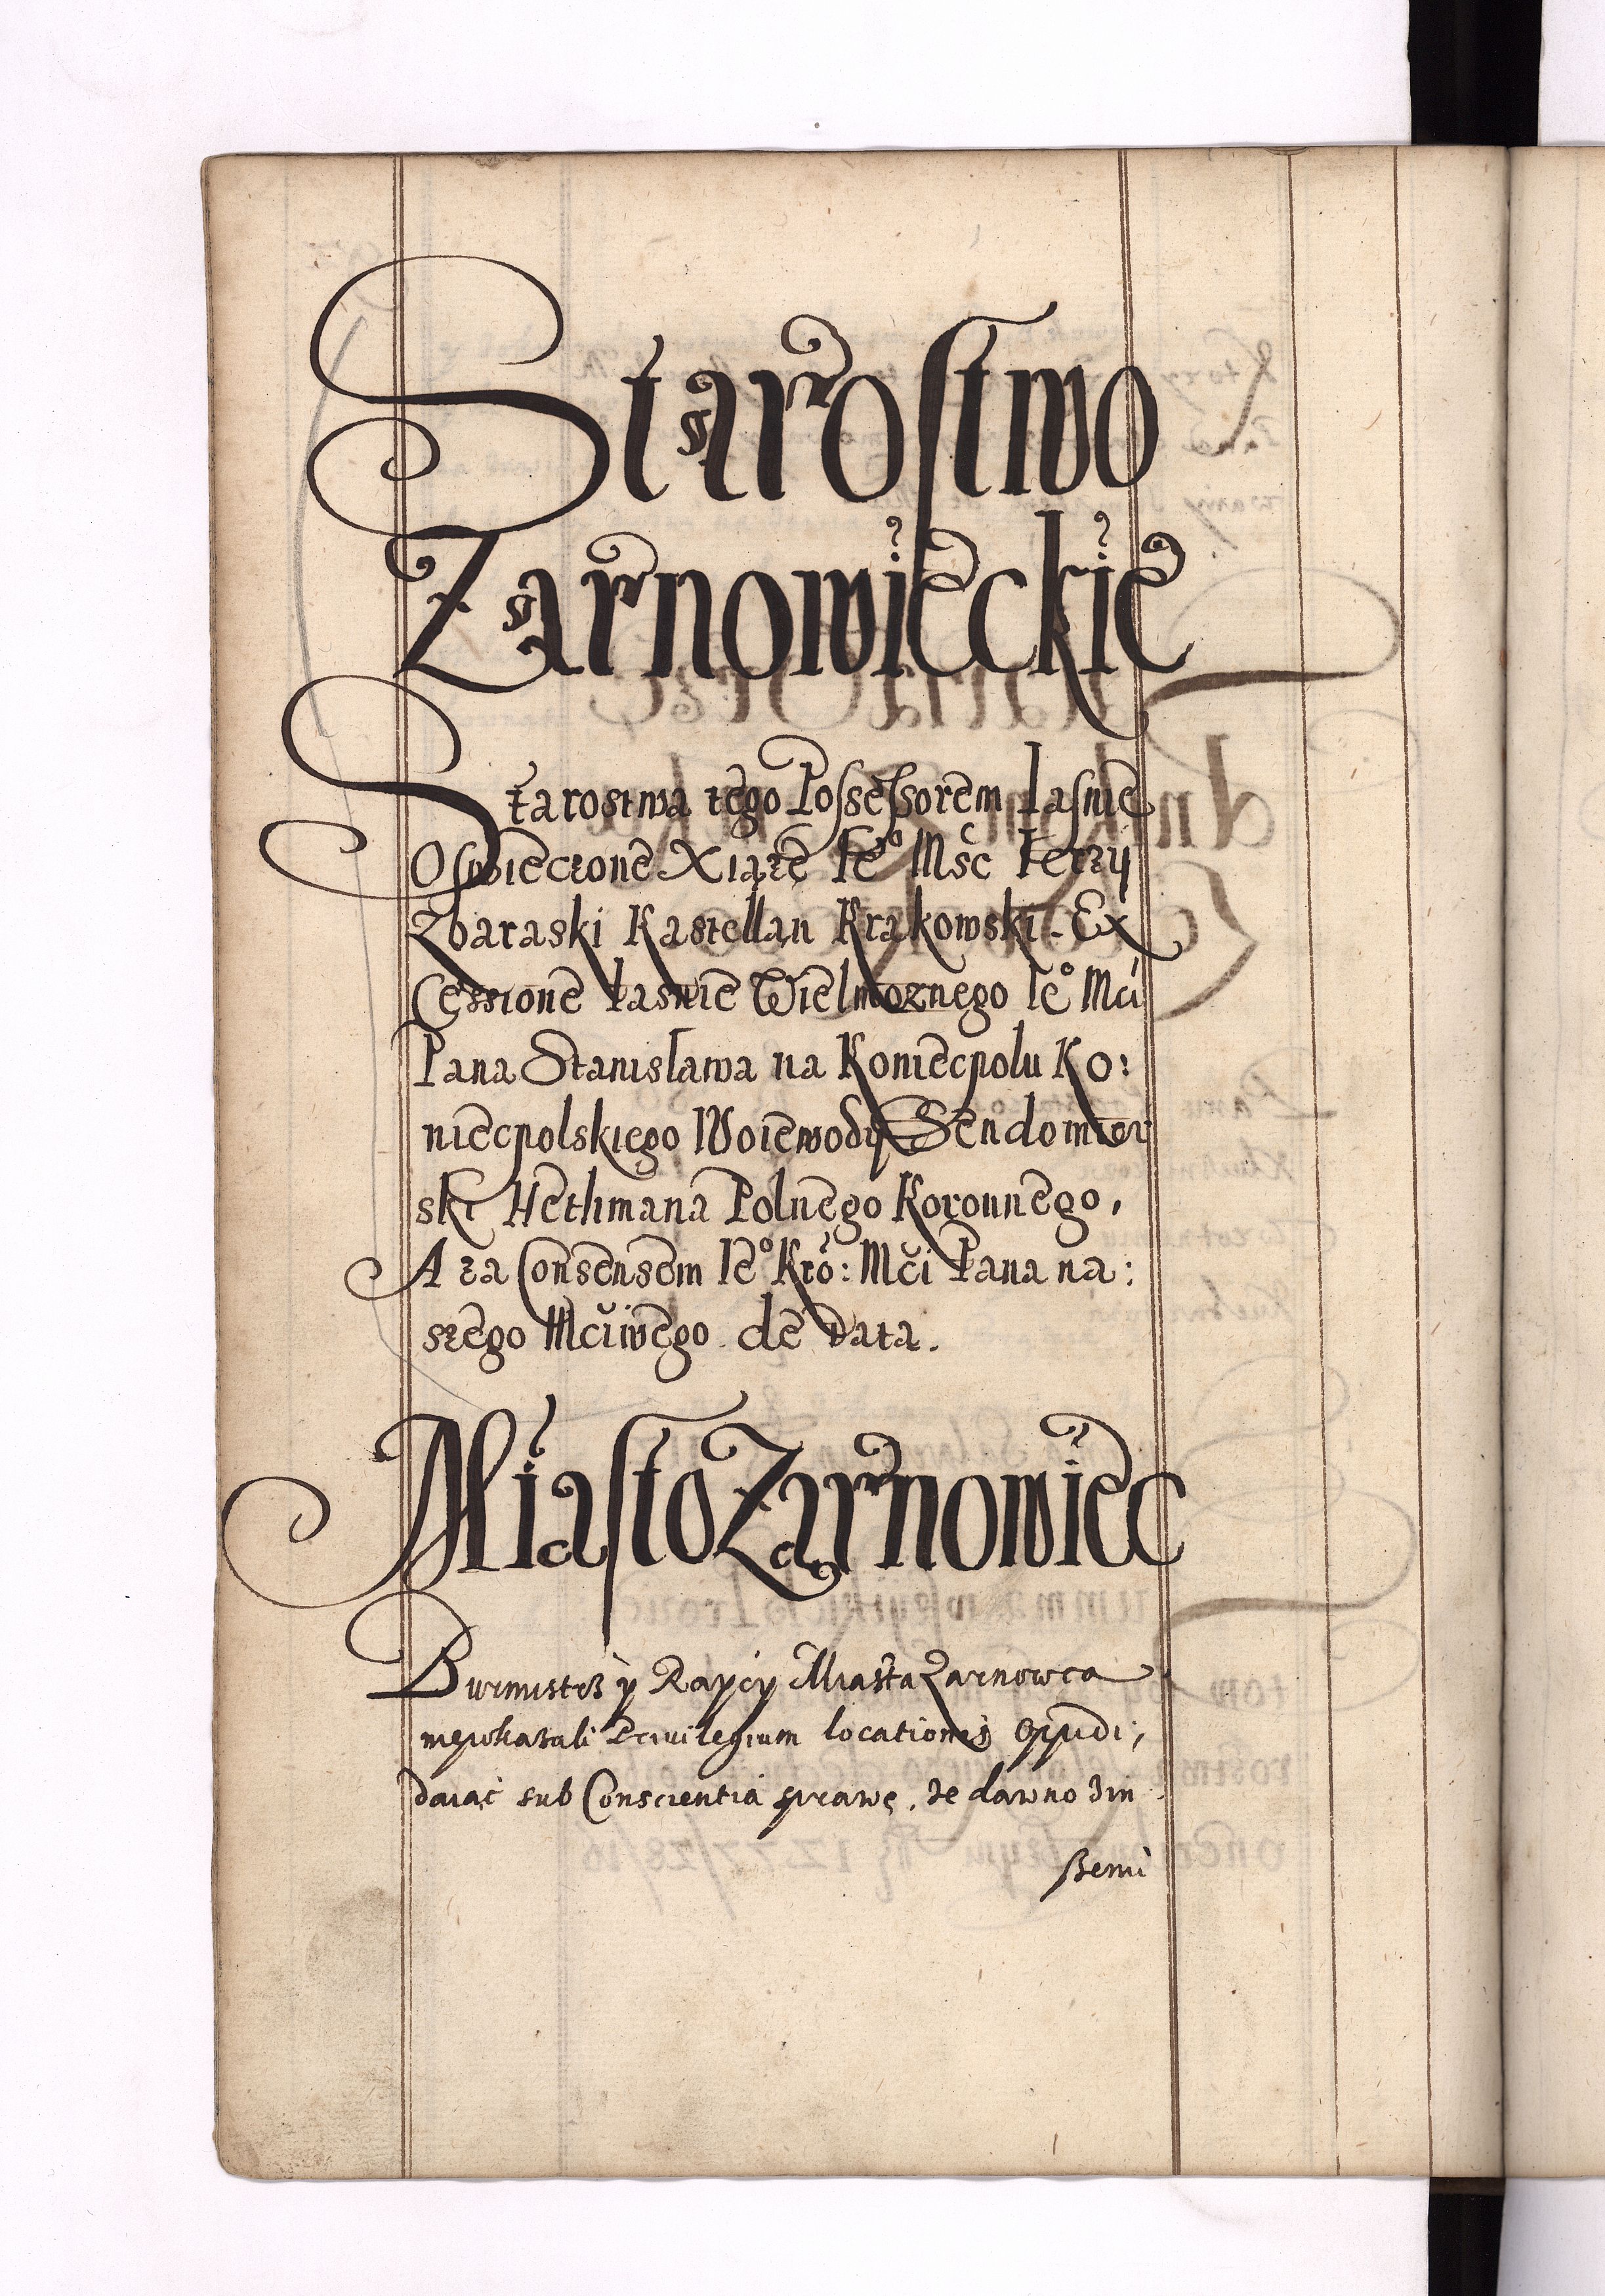 Starostwo
Zarnowieckie
Starostwa tego Possessorem Iasnie
Oswieczone Xiąże Ie° Mśc Ierzÿ
Zbaraski Kastellan Krakowski. Ex
Cessione Iasnie Wielmoznego Ie° Mći
Pana Stanislawa na Koniecpolu Ko:
niecpolskiego Woiewody Sendomier
ski Hethmana Polnego Koronnego,
A za Consensem Ie° Kró: Mći Pana na:
szego Mćiwego de Data.
Miasto Zarnowiec
Burmistrz y Raycy Miasta Zarnowca
niepokazali Priuilegium locationis Oppidi,
daiąc sub Conscientia sprawę, że dawno